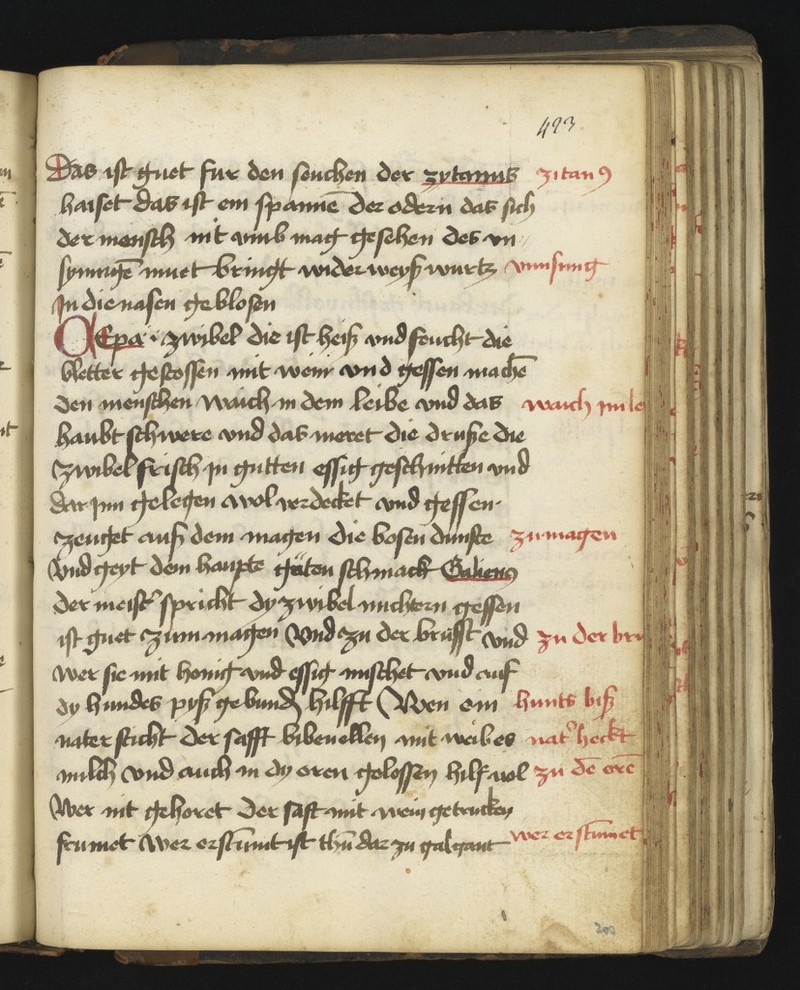 493
Das ist guet fur den seuchen der zytanus zitan9
haiset das ist ein spannē der odern das sich
der mensch nit vmb mag gesehen des vn〃
synnigē muet bringt wider weyß wurtz vnnsung
In die nasen geblosen
CEpa · zwibel die ist heiß vnd feucht die
bletter gestossen mit wein vnd gessen machē
den menschen waich in dem leibe vnd das waich im le
haubt schwere vnd das meret die druse die
zwibel frisch in gutten essig geschnitten vnd
dar Inn gelegen wol verdecket vnd gessen·
zeuget auß dem magen die bosen dunste zu magen
Vnd geyt dem haupte gůten schmack Galien9
der meist' spricht dy zwibel nuchtern gessen
ist guet zum magen Vnd zu der brusst vnd zu der bru
wer sie mit honig vnd essig mischet vnd auf
dy hundes pyß gebunden hilfft Wen ein hunts biß
nater sticht der safft bibenellen mit weibes nat' heckt
milch vnd auch in dy oren gelossen hilf wol zu dē orē
Wer nit gehoret der saft mit wein getrucken
frumet Wer erstūmt ist thū dar zu galgant wer erstūmet
200